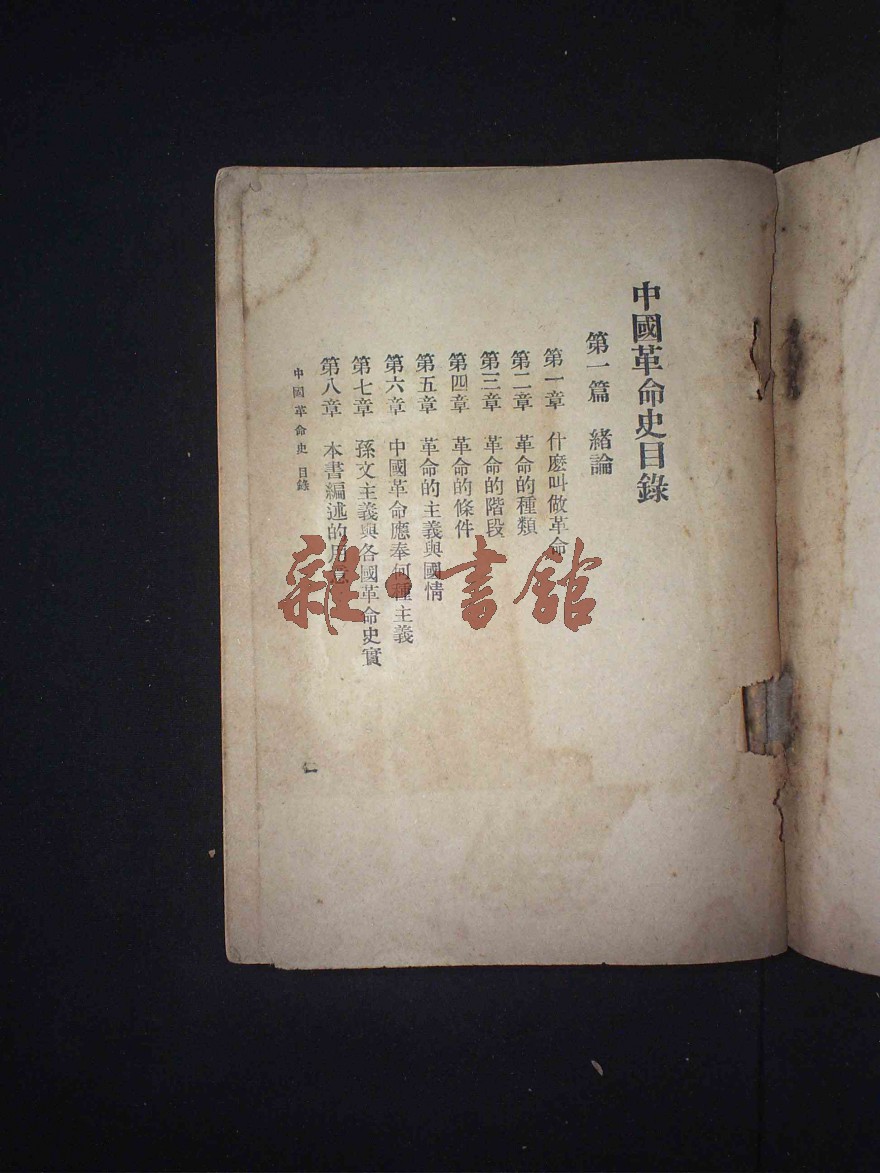 中國革命史目錄
第一篇 緒論
第一章 什麼叫做革命
第二章 革命的種類
第三章 革命的階段
第四章 革命的條件
第五章 革命的主義與國情
第六章 中國革命應奉何種主義
第七章 孫文主義與各國革命史實
第八章 本書編述的用意
中國革命史 目錄
一
雜·書館